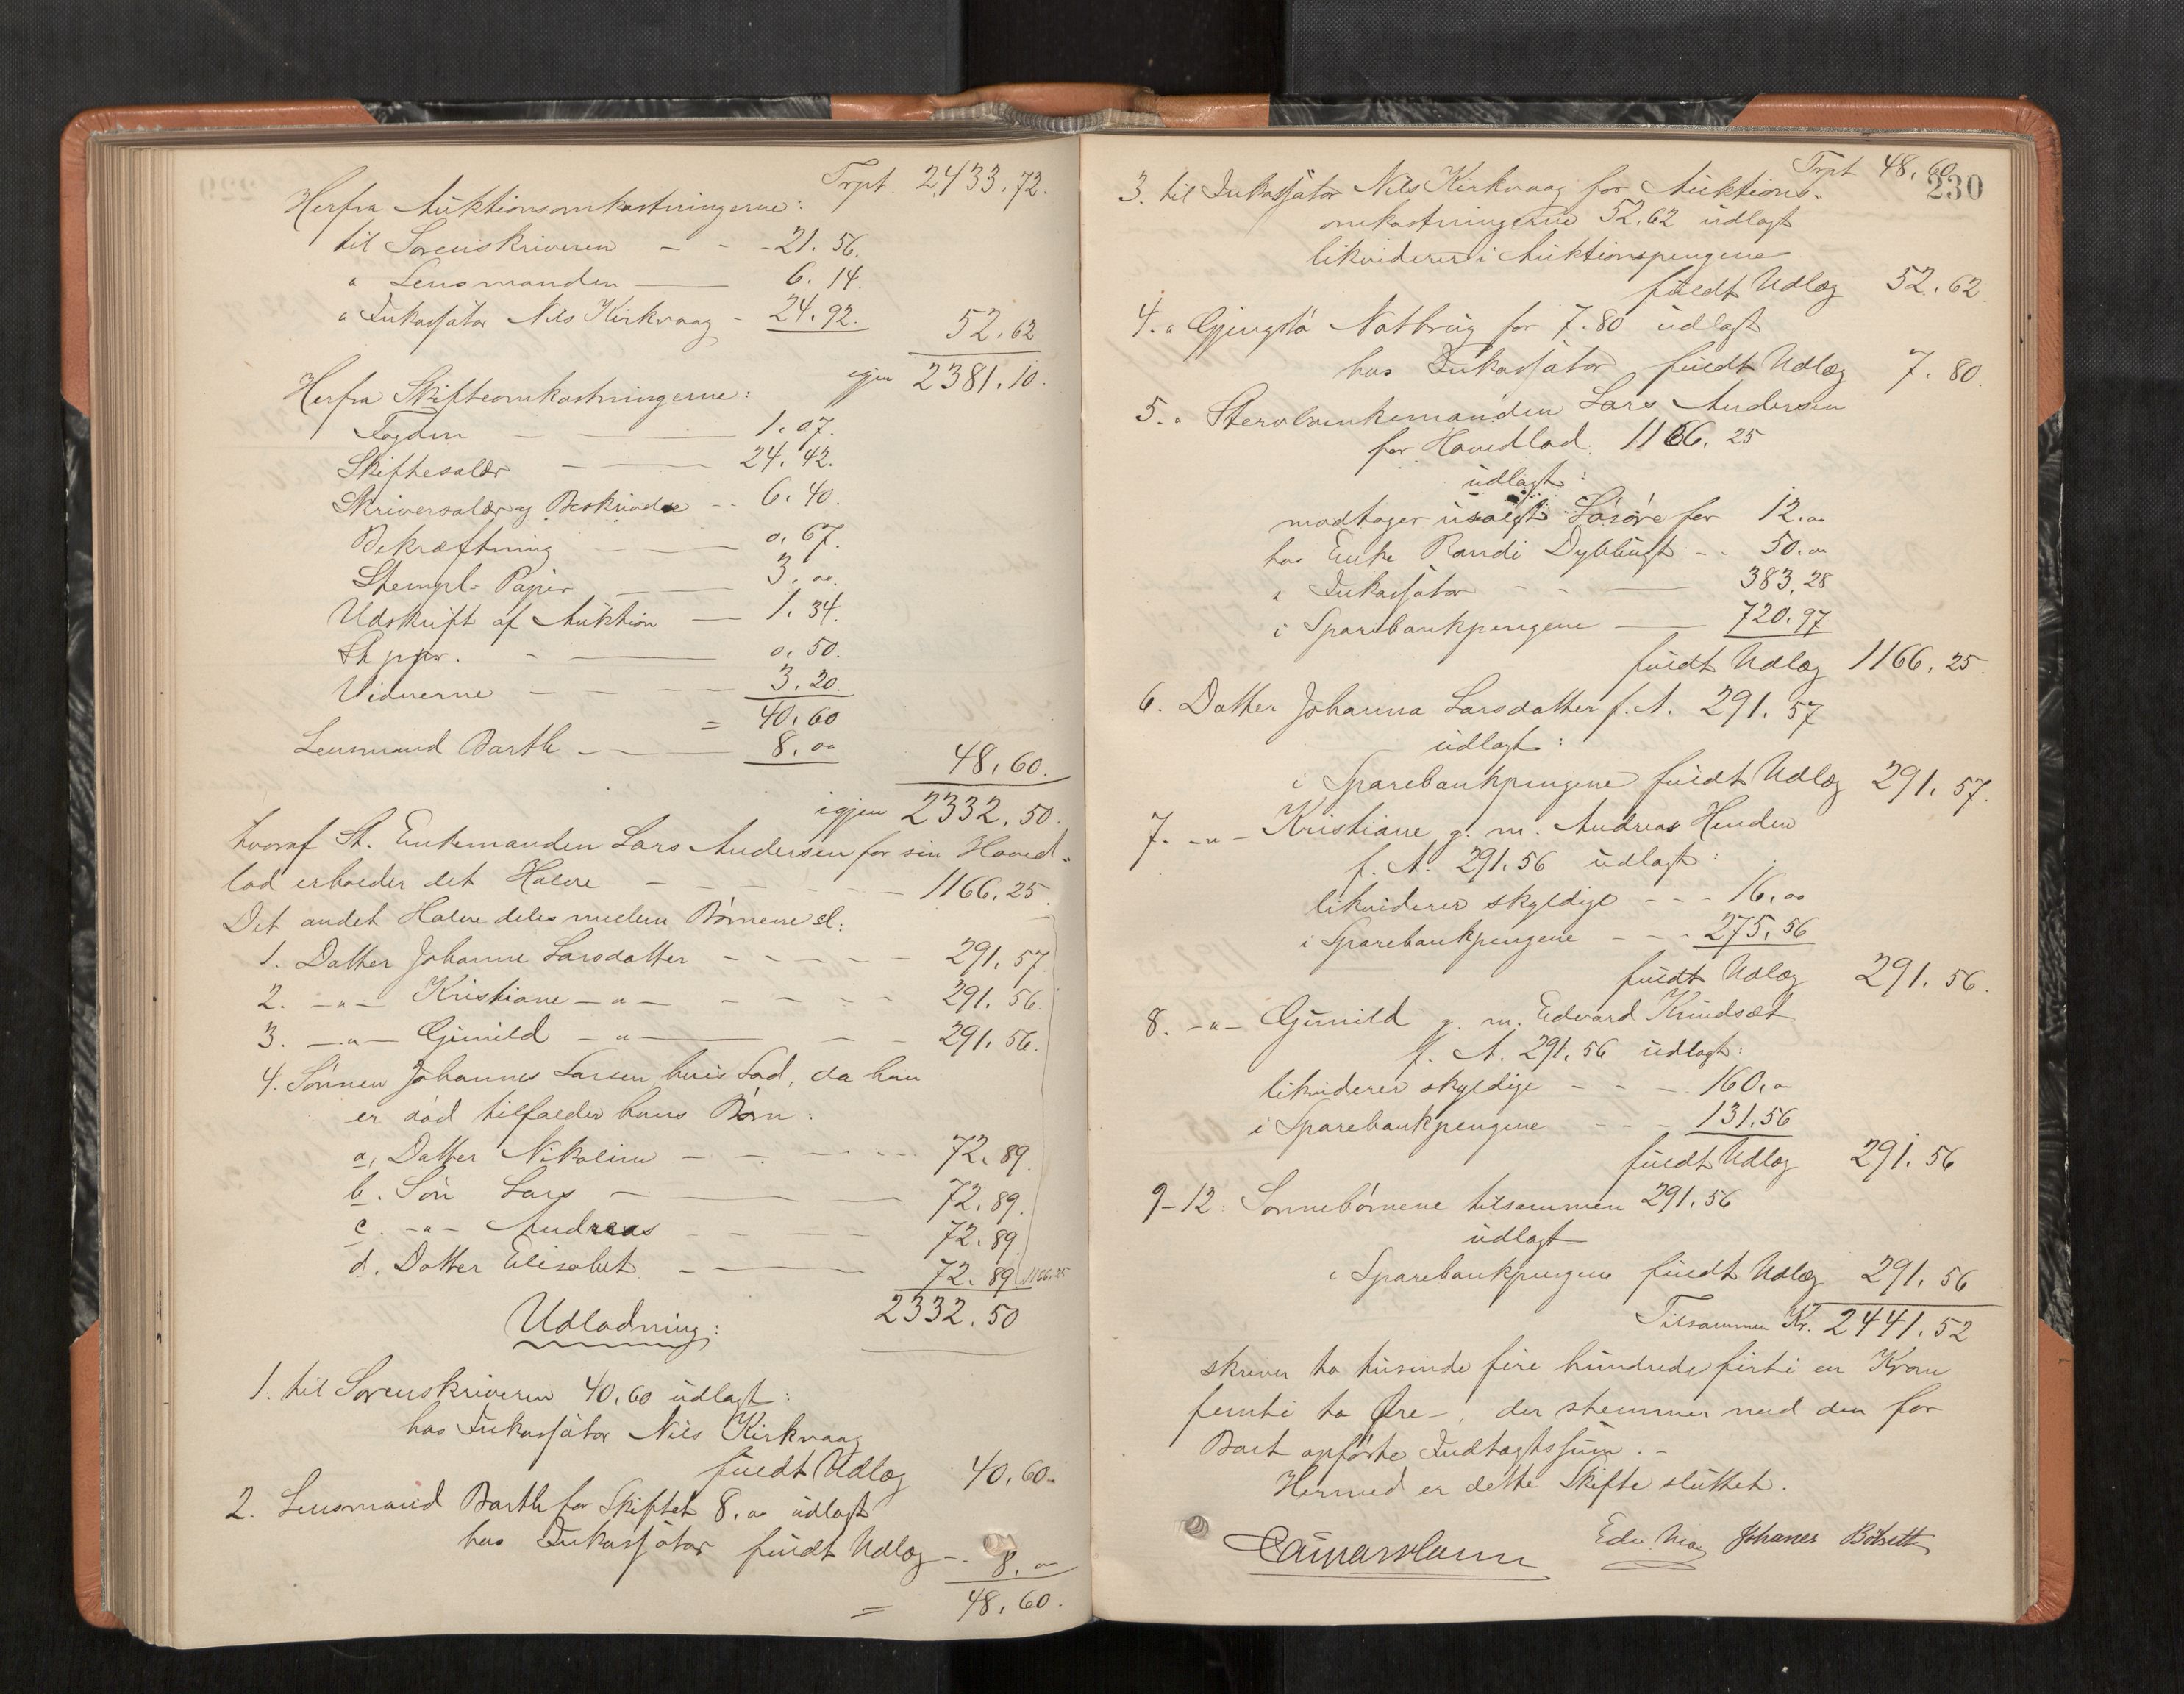 Trpt. 2433.72.
Herfra Auktionsomkostningerne:
til Sorenskriveren - - - 21.56.
" Lensmanden — 6.14.
" Inkassator Nils Kirkvaag - 24.92.
52.62
igjen 2381.10.
Herfra Skifteomkostningerne:
Fogden - — 1.07.
Skiftesalær — 24.42.
Skriversalær og Beskrivelse - - 6.40.
Bekræftning — 0.67.
Stempl. Papir — 3.00.
Udskrift af Auktion — 1.34.
St. papr. - — 0.50.
Vidnerne - - - - 3.20.
= 40.60
Lensmand Barth - — 8.00
48.60.
igjen 2332.50.
hvoraf St. Enkemanden Lars Andersen for sin Hoved-
lod erholder det Halve - - - - - 1166.25.
Det andet Halve deles mellem Børnene sl:
1. Datter Johanne Larsdatter - - - - - 291.57.
2. -"- Kristiane -"- - - - - 291.56.
3. -"- Gunild -"- — - - 291.56.
4. Sønnen Johannes Larsen hvis Lod, da han
er død tilfalder hans Børn:
a, Datter Nikoline - - - - - 72.89.
b. Søn Lars - — 72.89.
c. -"- Andreas - - - 72.89.
d. Datter Elisabet - — 72.89 1166.25
2332.50
Udlodning:
1. til Sorenskriveren 40.60 udlagt:
hos Inkassator Nils Kirkvaag
fuldt Udlæg 40.60.
2. Lensmand Barth for Skiftet 8.00 udlagt
hos Inkassator fuldt Udlæg - - 8.00
= 48.60.
Trpt 48.60
230
3. til Inkassator Nils Kirkvaag for Auktions-
omkostningerne 52.62 udlagt
likviderer i Auktionspengene
fuldt Udlæg 52.62.
4. " Notbrug for 7.80 udlagt
hos Inkassator fuldt Udlæg 7.80.
5. " Stervbenkemanden Lars Andersen
for Hovedlod 1166.25
udlagt:
modtager usolgt Løsøre for 12.00
hos Enke Randi - - 50.00
" Inkassator - - — 383.28
i Sparebankpengene — 720.97
fuldt Udlæg 1166.25.
6. Datter Johanna Larsdatter f. A. 291.57
udlagt:
i Sparebankpengene fuldt Udlæg 291.57.
7. -"- Kristiane g. m. Andreas Henden
f. A. 291.56 udlagt:
likviderer skyldige - - - 16.00
i Sparebankpengene - - - 275.56
fuldt Udlæg 291.56.
8. -"- Gunild g. m. Edvard Krudsæt
f. A. 291.56 udlagt:
likviderer skyldige - - - 160.00
i Sparebankpengene - - - 131.56
fuldt Udlæg 291.56
9-12: Sønnebørnene tilsammen 291.56
udlagt
i Sparebankpengene fuldt Udlæg 291.56
Tilsammen Kr. 2441.52
skriver to tusinde fire hundrede firti en Krone
femti to Øre -, der stemmer med den for
Boet opførte Indtægtssum. -
Hermed er dette Skifte sluttet.
Johanes